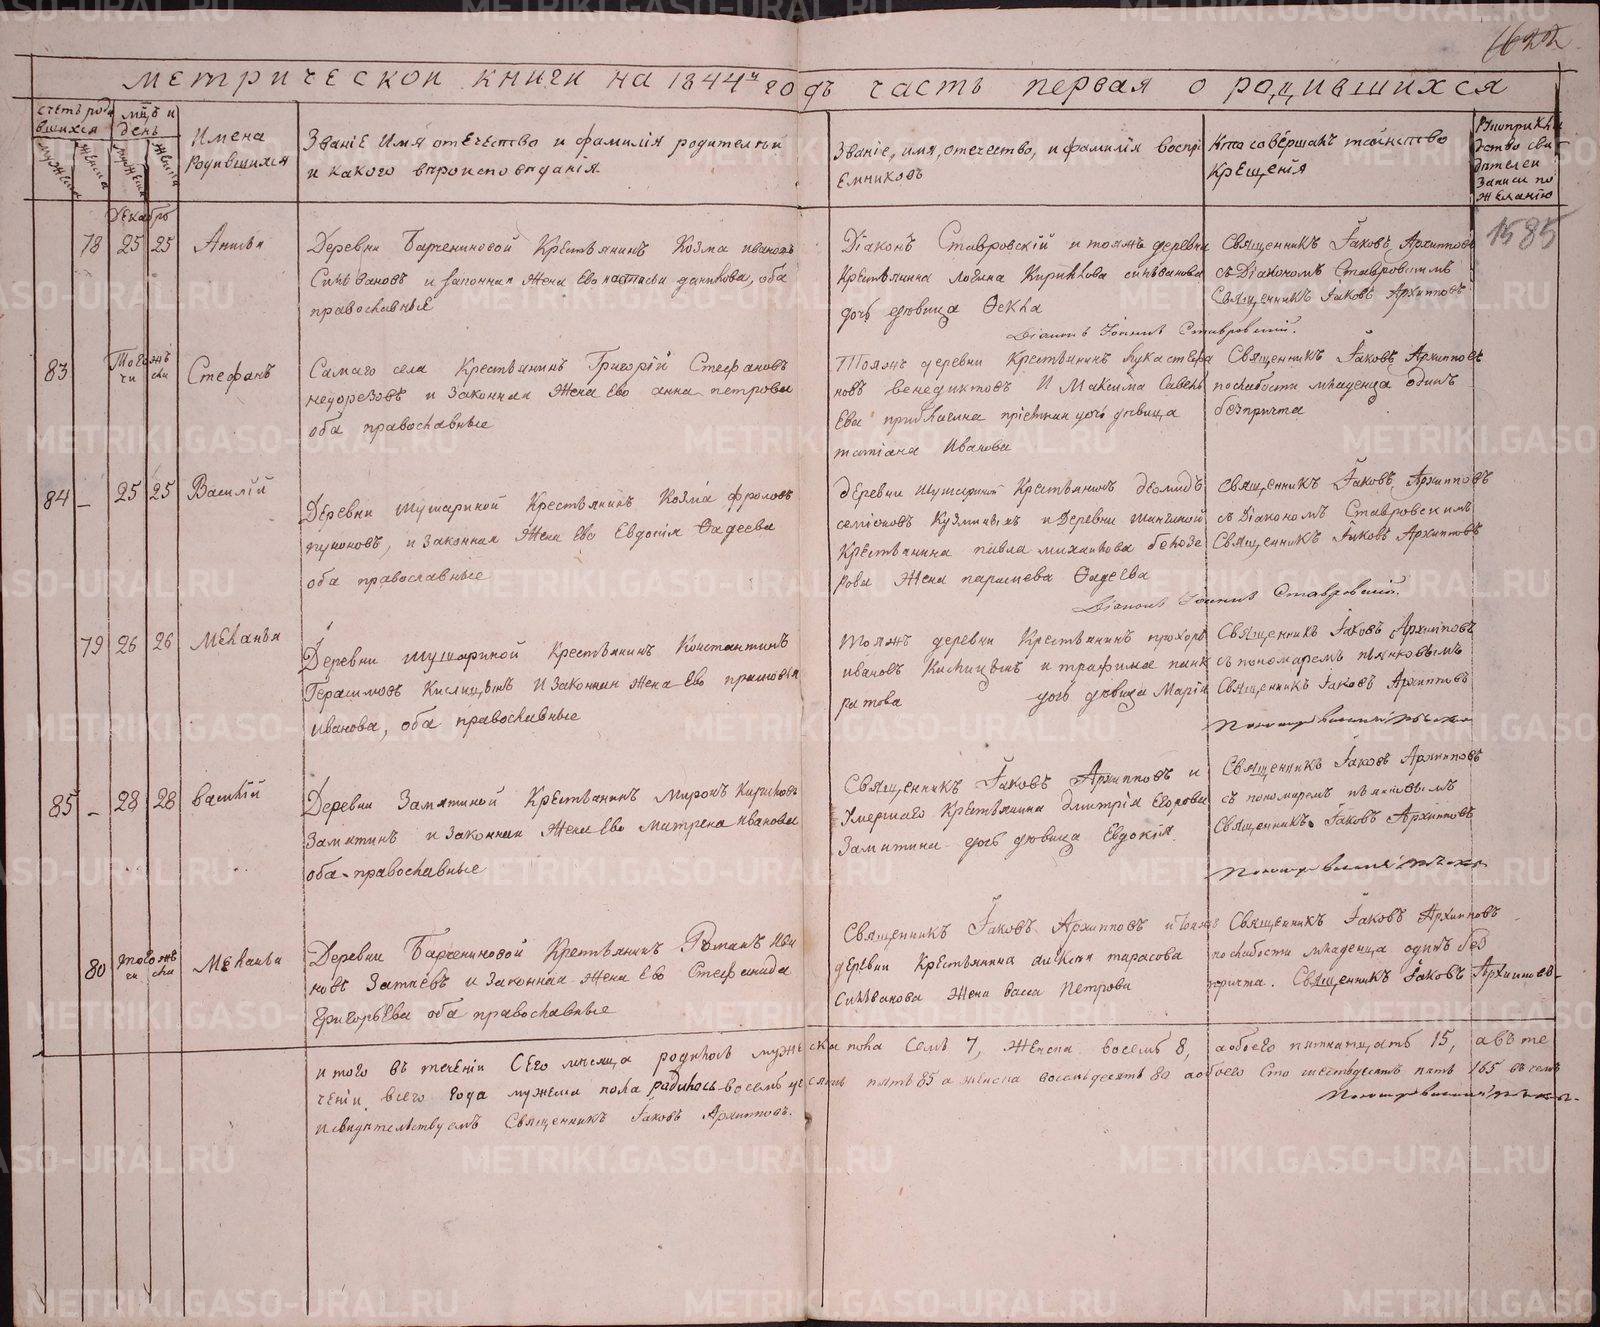 1622
метрической книги на 1844й годъ часть первая о родившихся
счетъ роди
вшихся
мужеска
женска
мцъ и
день
Имена
Родившихся
Званіе Имя отечество и фамилія родителей
и какого вѣроисповѣданія.
Званіе, имя, отечество, и фамилія воспрі
Емниковъ
Кто совершалъ таинство
Крещенія
Рукоприкла
дство сви
дѣтелей
Записи по
желанію
Декабрь
1585
78 25 25 Анисья
Деревни Барчениновой Крестьянинъ Козма Ивановъ
и законная Жена Ево Настасья Данилова, оба
православные
Діаконъ Ставровскій и тояжъ деревни
Крестьянина Логина Кирилова
дочь дѣвица Фекла
Діаконъ Іоаннъ Ставровскій.
Священникъ Іаковъ Архипповъ
съ Діакономъ Ставровскимъ
Священникъ Іаковъ Архипповъ
83 Тогожъ числа Стефанъ
Самаго села Крестьянинъ Григорій Стефановъ
недорезовъ и Законная Жена Ево Анна Петрова
оба православные
Тояжъ деревни Крестьянинъ
венедиктовъ И Максима Савель
Ева дочь дѣвица
татіана Иванова
Священникъ Іаковъ Архипповъ
послабости младенца одинъ
безпричта
84 – 25 25 Василій
Деревни Шушариной Крестьянинъ Козма Фроловъ
и Законная Жена Ево Евдокія Фадеева
оба православные
деревни Шушариной Крестьянинъ
семіоновъ и Деревни
Крестьянина Павла Михаилова белозе
рова Жена парасцева Фадеева
Діаконъ Іоаннъ Ставровскій.
Священникъ Іаковъ Архипповъ
съ Діакономъ Ставровскимъ
Священникъ Іаковъ Архипповъ
79 26 26 Меланья
Деревни Шушариной Крестьянинъ Константинъ
Герасимовъ Кислицынъ И Законная Жена Ево прасковья
Иванова, оба православные
тояжъ деревни Крестьянинъ прохоръ
ивановъ Кислицынъ и трафима панк
ратова дочь дѣвица Марія
Священникъ Іаковъ Архипповъ
съ пономаремъ пѣнковымъ
Священникъ Іаковъ Архипповъ
85 – 28 28 Василій
Деревни Замятиной Крестьянинъ Миронъ Кириловъ
Замятинъ и Законная Жена Ево Матрена Иванова
оба православные
Священникъ Іаковъ Архипповъ и
Умершаго Крестьянина Дмитрія Егорова
Замятина дочь дѣвица Евдокія.
Священникъ Іаковъ Архипповъ
съ пономаремъ пѣнковымъ
Священникъ Іаковъ Архипповъ
80 тогожъ числа Меланья
Деревни Барчениновой Крестьянинъ Романъ Ива
новъ и Законная Жена Ево Стефанида
Григорьева оба православные
Священникъ Іаковъ Архипповъ и тояжъ
деревни Крестьянина алексѣя тарасова
Жена васса Петрова
Священникъ Іаковъ Архипповъ
послабости младенца одинъ без
причта. Священникъ Іаковъ Архипповъ
итого въ теченіи Сего месяца родилось мужеска пола семь 7, Женска восемь 8, а обоего пятнатцать 15, а въ те
ченіи всего Года мужеска пола родилось восемьдесятъ пять 85 а женска восемьдесятъ 80 а обоего Сто шестьдесятъ пять 165 въ чемъ
исвидѣтельствуемъ Священникъ Іаковъ Архипповъ.
METRIKI.GASO-URAL.RU